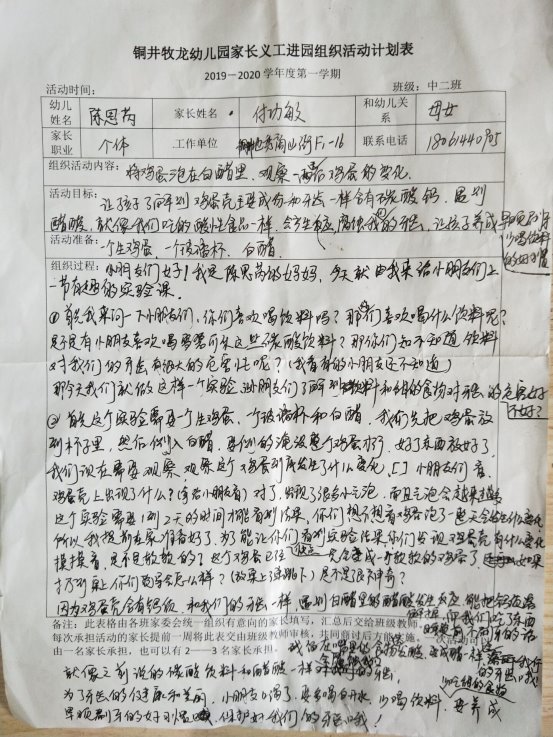 铜井牧龙幼儿园家长义工进园组织活动计划表
2019－2020 学年度第一学期
活动时间： 班级：中二班
幼儿姓名 陈思芮 家长姓名 付功敏 和幼儿关系 母女
家长职业 个体 工作单位 街F1-16 联系电话
组织活动内容：将鸡蛋泡在白醋里，观察一天后鸡蛋的变化。
活动目标：让孩子了解到鸡蛋壳主要成份和牙齿一样含有碳酸钙，遇到
醋酸，就像我们吃的酸性食品一样，会产生反应，腐蚀我们的牙齿，让孩子养成早晚刷牙
少喝饮料
的好习惯
活动准备：一个生鸡蛋，一个玻璃杯，白醋
组织过程：小朋友们好！我是陈思芮的妈妈，今天就由我来给小朋友们上
一节有趣的实验课。
①首先我来问一下小朋友们，你们喜欢喝饮料吗？那你们喜欢喝什么饮料呢？
是不是有小朋友喜欢喝可乐这些碳酸饮料？那你们知不知道饮料
对我们的牙齿有很大的危害性呢？（我看有的小朋友还不知道）
那今天我们就做这样一个实验，让小朋友们了解到饮料和酸的食物对牙齿的危害好
不好？
②首先这个实验需要一个生鸡蛋，一个玻璃杯和白醋，我们先把鸡蛋放
到杯子里，然后倒入白醋，要倒的淹没整个鸡蛋才行，好了东西放好了，
我们现在需要观察，观察这个鸡蛋到底发生了什么变化，小朋友们看，
鸡蛋壳上出现了什么？（让小朋友看）对了，出现了很多小气泡，而且气泡会越来越多
这个实验需要1到2天的时间才能看到结果，你们想不想看鸡蛋泡了一整天会发生什么变化
所以我提前在家准备好了，为了能让你们看到实验结果，你们发现鸡蛋壳有什么变化
摸摸看，是不是软软的？这个鸡蛋已经 变成一个软软的鸡蛋了，如果
打到桌上你们觉得会怎么样？（放桌上弹跳下）是不是很神奇？
因为鸡蛋壳含有钙质，和我们的牙齿一样，遇到白醋里的醋酸发生反应，能把钙质溶
备注：此表格由各班家委会统一组织有意向的家长填写，汇总后交给班级教师，
每次承担活动的家长提前一周将此表交由班级教师审核，共同商讨后方能
由一名家长承担，也可以有 2——3 名家长承担。
就像之前说的碳酸饮料和醋酸一样
为了牙齿的健康和美丽，小朋友口渴了，要多喝白开水，少喝饮料，要养成
早晚刷牙的好习惯，保护好我们的牙齿哦！